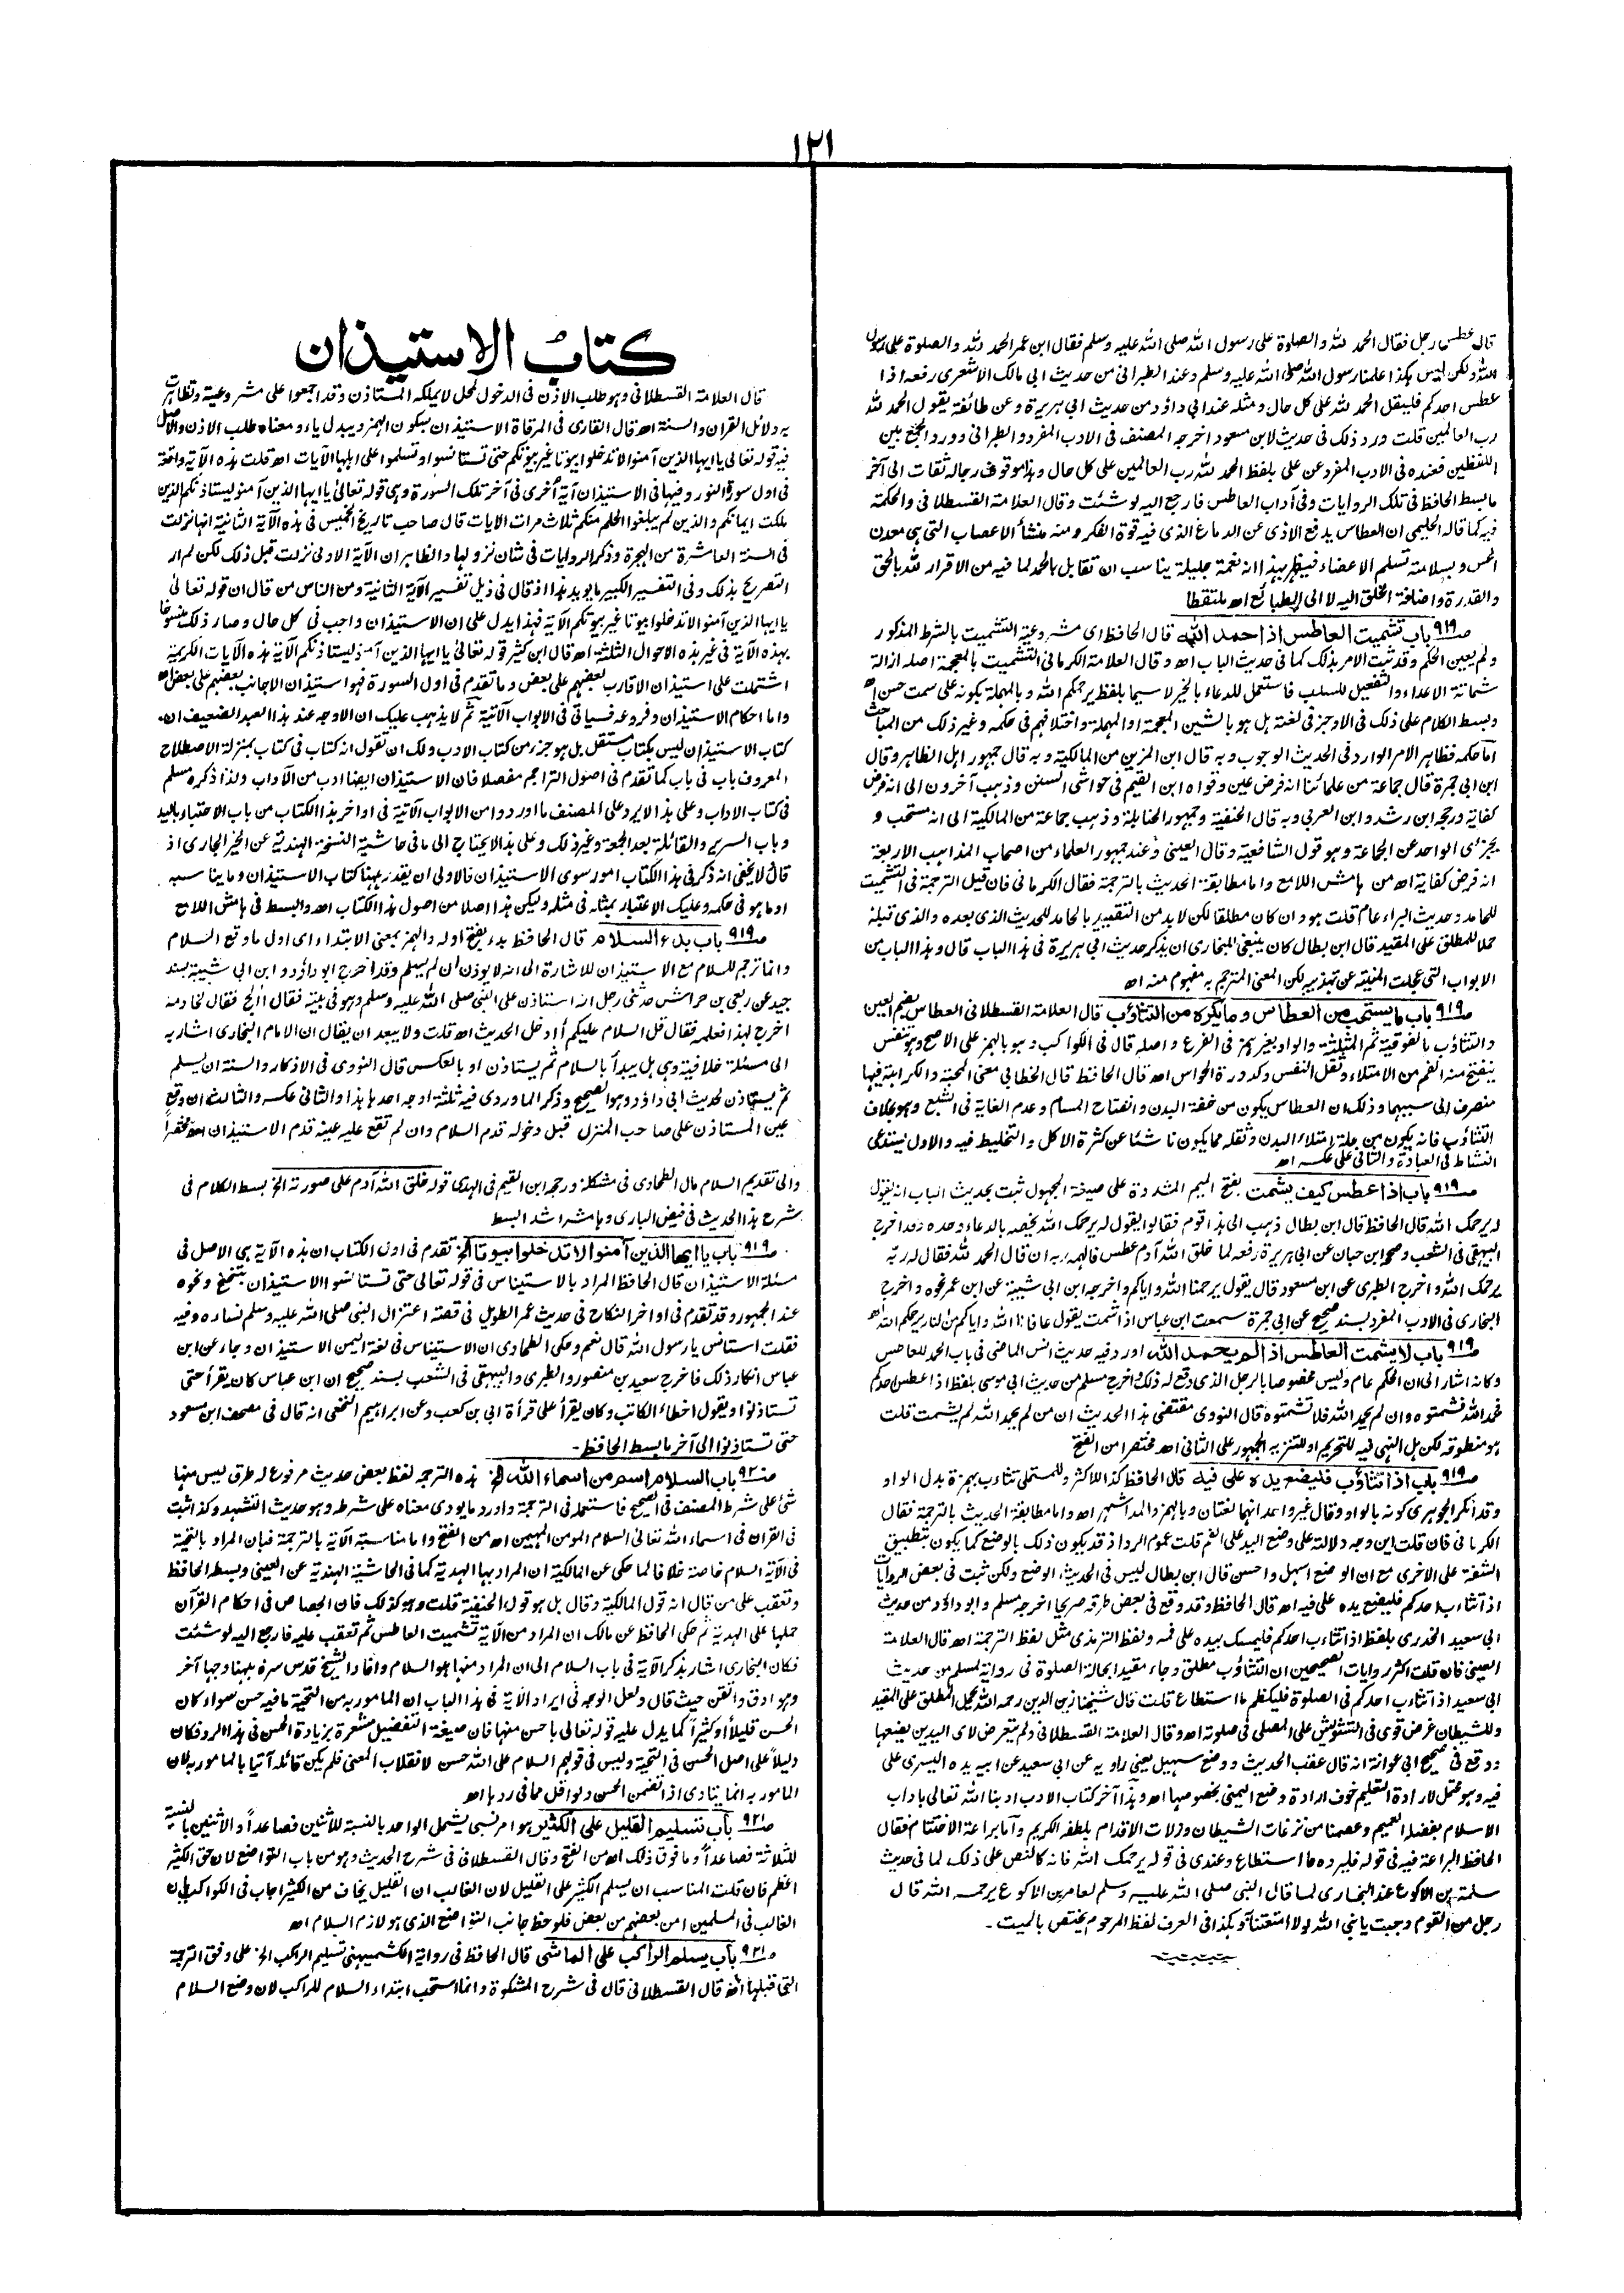 ١٢١
قال عطس رجل فقال الحمد لله والصلوة على رسول الله صلى الله عليه وسلم فقال ابن عمر الحمد لله والصلوة على رسول
الله ولكن ليس هكذا علمنا رسول الله صلى الله عليه وسلم وعند الطبرانى من حديث ابى مالك الاشعرى رفعه اذا
عطس احدكم فليقل الحمد لله على كل حال ومثله عند ابى داؤد من حديث ابى هريرة وعن طائفة يقول الحمد لله
رب العالمين قلت ورد ذلك فى حديث لابن مسعود اخرجه المصنف فى الادب المفرد والطبرانى وورد الجمع بين
اللفظين فعنده فى الادب المفرد عن على بلفظ الحمد لله رب العالمين على كل حال وهذا موقوف رجاله ثقات الى آخر
ما بسط الحافظ فى تلك الروايات وفى آداب العاطس فارجع اليه لو شئت وقال العلامة القسطلانى والحكمة
فيه كما قاله الحليمى ان العطاس يدفع الاذى عن الدماغ الذى فيه قوة الفكر ومنه منشأ الاعصاب التى هى معدن
الحس وبسلامته تسلم الاعضاء فيظهر بهذا انه نعمة جليلة يناسب ان تقابل بالحمد لما فيه من الاقرار لله بالحق
والقدرة واضافة الخلق اليه لا الى الطبائع اھ ملتقطا
صـ٩١٩ باب تشميت العاطس اذا حمد الله قال الحافظ اى مشروعية التشميت بالشرط المذكور
ولم يعين الحكم وقد ثبت الامر بذلك كما فى حديث الباب اھ وقال العلامة الكرمانى التشميت بالمعجمة اصله ازالة
شماتة الاعداء والتفعيل للسلب فاستعمل للدعاء بالخير لاسيما بلفظ يرحمكم الله وبالمهملة بكونه على سمت حسن اھ
وبسط الكلام على ذلك فى الاوجز فى لغته بل هو بالشين المعجمة او المهملة واختلافهم فى حكمه وغير ذلك من المباحث
اما حكمه فظاهر الامر الوارد فى الحديث الوجوب وبه قال ابن المزين من المالكية وبه قال جمهور اهل الظاهر وقال
ابن ابى جمرة قال جماعة من علمائنا انه فرض عين وقواه ابن القيم فى حواشى السنن وذهب آخرون الى انه فرض
كفاية ورجحه ابن رشد وابن العربى وبه قال الحنفية وجمهور الحنابلة وذهب جماعة من المالكية الى انه مستحب و
يجزئ الواحد عن الجماعة وهو قول الشافعية وقال العينى وعند جمهور العلماء من اصحاب المذاهب الاربعة
انه فرض كفاية اھ من هامش اللامع واما مطابقة الحديث بالترجمة فقال الكرمانى فان قيل الترجمة فى التشميت
للحامد وحديث البراء عام قلت هو وان كان مطلقا لكن لابد من التقييد بالحامد للحديث الذى بعده والذى قبله
حملا للمطلق على المقيد قال ابن بطال كان ينبغى للبخارى ان يذكر حديث ابى هريرة فى هذا الباب قال وهذا الباب من
الابواب التى عجلت المنية عن تهذيبه لكن المعنى المترجم به مفهوم منه اھ
صـ٩١٩ باب ما يستحب من العطاس وما يكره من التثاؤب قال العلامة القسطلانى العطاس بضم العين
والتثاؤب بالفوقية ثم المثلثة والواو بغير همز فى الفرع واصله قال فى الكواكب وهو بالهمز على الاصح وهو تنفس
ينفتح منه الفم من الامتلاء وثقل النفس وكدورة الحواس اھ قال الحافظ قال الخطابى معنى المحبة والكراهة فيها
منصرف الى سببهما وذلك ان العطاس يكون من خفة البدن وانفتاح المسام وعدم الغاية فى الشبع وهو بخلاف
التثاؤب فانه يكون من علة امتلاء البدن وثقله مما يكون ناشئا عن كثرة الاكل والتخليط فيه والاول يستدعى
النشاط فى العبادة والثانى على عكسه اھ
صـ٩١٩ باب اذا عطس كيف يشمت بفتح الميم المشددة على صيغة المجهول ثبت بحديث الباب انه يقول
له يرحمك الله قال الحافظ قال ابن بطال ذهب الى هذا قوم فقالوا يقول له يرحمك الله يخصه بالدعاء وحده وقد اخرج
البيهقى فى الشعب وصححه ابن حبان عن ابى هريرة رفعه لما خلق الله آدم عطس فالهمه ربه ان قال الحمد لله فقال له ربه
يرحمك الله واخرج الطبرى عن ابن مسعود قال يقول يرحمنا الله واياكم واخرجه ابن ابى شيبة عن ابن عمر نحوه واخرج
البخارى فى الادب المفرد بسند صحيح عن ابى جمرة سمعت ابن عباس اذا شمت يقول عافانا الله واياكم من النار يرحمكم الله اھ
صـ٩١٩ باب لا يشمت العاطس اذا لم يحمد الله اورد فيه حديث انس الماضى فى باب الحمد للعاطس
وكانه اشار الى ان الحكم عام وليس مخصوصا بالرجل الذى وقع له ذلك واخرج مسلم من حديث ابى موسى بلفظ اذا عطس احدكم
فحمد الله فشمتوه وان لم يحمد الله فلا تشمتوه قال النووى مقتضى هذا الحديث ان من لم يحمد الله لم يشمت قلت
هو منطوقه لكن هل النهى فيه للتحريم او للتنزيه الجمهور على الثانى اھ مختصرا من الفتح
صـ٩١٩ باب اذا تثاؤب فليضع يده على فيه قال الحافظ كذا للاكثر وللمستملى تثاءب بهمزة بدل الواو
وقد انكر الجوهرى كونه بالواو وقال غير واحد انهما لغتان وبالهمز والمد اشهر اھ واما مطابقة الحديث بالترجمة فقال
الكرمانى فان قلت اين وجه دلالته على وضع اليد على الفم قلت عموم الرد اذ قد يكون ذلك بالوضع كما يكون بتطبيق
الشفة على الاخرى مع ان الوضع اسهل واحسن قال ابن بطال ليس فى الحديث الوضع ولكن ثبت فى بعض الروايات
اذا تثاءب احدكم فليضع يده على فيه اھ قال الحافظ وقد وقع فى بعض طرقه صريحا اخرجه مسلم وابو داؤد من حديث
ابى سعيد الخدرى بلفظ اذا تثاءب احدكم فليمسك بيده على فمه ولفظ الترمذى مثل لفظ الترجمة اھ قال العلامة
العينى فان قلت اكثر روايات الصحيحين ان التثاؤب مطلق وجاء مقيدا بحالة الصلوة فى رواية لمسلم من حديث
ابى سعيد اذا تثاءب احدكم فى الصلوة فليكظم ما استطاع قلت قال شيخنا زين الدين رحمه الله يحمل المطلق على المقيد
وللشيطان غرض قوى فى التشويش على المصلى فى صلوته اھ وقال العلامة القسطلانى ولم يتعرض لاى اليدين يضعها
ووقع فى صحيح ابى عوانة انه قال عقب الحديث ووضع سهيل يعنى راويه عن ابى سعيد عن ابيه يده اليسرى على
فيه وهو محتمل لارادة التعليم خوف ارادة وضع اليمنى بخصوصها اھ وهذا آخر كتاب الادب ادبنا الله تعالى باداب
الاسلام بفضله العميم وعصمنا من نزغات الشيطان وزلات الاقدام بلطفه الكريم وأما براعة الاختتام فقال
الحافظ البراعة فيه فى قوله فليرده ما استطاع وعندى فى قوله يرحمك الله فانه كالنص على ذلك لما فى حديث
سلمة بن الاكوع عند البخارى لما قال النبى صلى الله عليه وسلم لعامر بن الاكوع يرحمه الله قال
رجل من القوم وجبت يا نبى الله لولا امتعتنا به وهكذا فى العرف لفظ المرحوم يختص بالميت -
كتاب الاستيذان
قال العلامة القسطلانى وهو طلب الاذن فى الدخول لمحل لا يملكه المستاذن وقد اجمعوا على مشروعية وتظاهرت
به دلائل القرآن والسنة اھ قال القارى فى المرقاة الاستيذان بسكون الهمز ويبدل ياء ومعناه طلب الاذن والاصل
فيه قوله تعالى يا ايها الذين آمنوا لا تدخلوا بيوتا غير بيوتكم حتى تستانسوا وتسلموا على اهلها الآيات اھ قلت هذه الآية واقعة
فى اول سورة النور وفيها فى الاستيذان آية أخرى فى آخر تلك السورة وهى قوله تعالى يا ايها الذين آمنو ليستاذنكم الذين
ملكت ايمانكم والذين لم يبلغوا الحلم منكم ثلاث مرات الايات قال صاحب تاريخ الخميس فى هذه الآية الثانية انها نزلت
فى السنة العاشرة من الهجرة وذكر الروايات فى شان نزولها والظاهر ان الآية الاولى نزلت قبل ذلك لكن لم ار
التصريح بذلك وفى التفسير الكبير ما يويد هذا اذ قال فى ذيل تفسير الآية الثانية ومن الناس من قال ان قوله تعالى
يا ايها الذين آمنوا لا تدخلوا بيوتا غير بيوتكم الآية فهذا يدل على ان الاستيذان واجب فى كل حال وصار ذلك منسوخا
بهذه الآية فى غير هذه الاحوال الثلثة اھ قال ابن كثير قوله تعالى يا ايها الذين آمنوا ليستاذنكم الآية هذه الآيات الكريمة
اشتملت على استيذان الاقارب بعضهم على بعض وما تقدم فى اول السورة فهو استيذان الاجانب بعضهم على بعض اھ
واما احكام الاستيذان وفروعه فسياتى فى الابواب الآتية ثم لا يذهب عليك ان الاوجه عند هذا العبد الضعيف ان
كتاب الاستيذان ليس بكتاب مستقل بل هو جزء من كتاب الادب ولك ان تقول انه كتاب فى كتاب بمنزلة الاصطلاح
المعروف باب فى باب كما تقدم فى اصول التراجم مفصلا فان الاستيذان ايضا ادب من الآداب ولذا ذكره مسلم
فى كتاب الاداب وعلى هذا لا يرد على المصنف ما اوردوا من الابواب الآتية فى اواخر هذا الكتاب من باب الاحتباء باليد
وباب السرير والقائلة بعد الجمعة وغير ذلك وعلى هذا لا يحتاج الى ما فى حاشية النسخة الهندية عن الخير الجارى اذ
قال لا يخفى انه ذكر فى هذا الكتاب امور سوى الاستيذان فالاولى ان يقدر ههنا كتاب الاستيذان وما يناسبه
او ما هو فى حكمه وعليك الاعتبار بمثله فى مثله وليكن هذا اصلا من اصول هذا الكتاب اھ والبسط فى هامش اللامع
صـ٩١٩ باب بدء السلام قال الحافظ بدء بفتح اوله والهمز بمعنى الابتداء اى اول ما وقع السلام
وانما ترجم للسلام مع الاستيذان للاشارة الى انه لا يوذن لمن لم يسلم وقد اخرج ابو داؤد وابن ابى شيبة بسند
جيد عن ربعى بن حراش حدثنى رجل انه استاذن على النبى صلى الله عليه وسلم وهو فى بيته فقال أألج فقال لخادمه
اخرج لهذا فعلمه فقال قل السلام عليكم أادخل الحديث اھ قلت ولا يبعد ان يقال ان الامام البخارى اشار به
الى مسئلة خلافية وهى هل يبدأ بالسلام ثم يستاذن او بالعكس قال النووى فى الاذكار والسنة ان يسلم
ثم يستاذن لحديث ابى داؤد وهو الصحيح وذكر الماوردى فيه ثلثة اوجه احدها هذا والثانى عكسه والثالث ان وقع
عين المستاذن على صاحب المنزل قبل دخوله قدم السلام وان لم تقع عليه عينه قدم الاستيذان اھ مختصراً
والى تقديم السلام مال الطحاوى فى مشكله ورجحه ابن القيم فى الهدى قوله خلق الله آدم على صورته الخ بسط الكلام فى
شرح هذا الحديث فى فيض البارى وهامشه اشد البسط
صـ٩١٩ باب يا ايها الذين آمنوا لا تدخلوا بيوتا الخ تقدم فى اول الكتاب ان هذه الآية هى الاصل فى
مسئلة الاستيذان قال الحافظ المراد بالاستيناس فى قوله تعالى حتى تستانسوا الاستيذان بتنحنح ونحوه
عند الجمهور وقد تقدم فى اواخر النكاح فى حديث عمر الطويل فى قصة اعتزال النبى صلى الله عليه وسلم نساءه وفيه
فقلت استانس يا رسول الله قال نعم وحكى الطحاوى ان الاستيناس فى لغة اليمن الاستيذان وجاء عن ابن
عباس انكار ذلك فاخرج سعيد بن منصور والطبرى والبيهقى فى الشعب بسند صحيح ان ابن عباس كان يقرأ حتى
تستاذنوا ويقول اخطأ الكاتب وكان يقرأ على قرأة ابى بن كعب وعن ابراهيم النخعى انه قال فى مصحف ابن مسعود
حتى تستاذنوا الى آخر ما بسط الحافظ -
صـ٩٢٠ باب السلام اسم من اسماء الله الخ هذه الترجمة لفظ بعض حديث مرفوع له طرق ليس منها
شئ على شرط المصنف فى الصحيح فاستعمله فى الترجمة واورد ما يودى معناه على شرطه وهو حديث التشهد وكذا ثبت
فى القرآن فى اسماء الله تعالى السلام المومن المهيمن اھ من الفتح واما مناسبة الآية بالترجمة فبان المراد بالتحية
فى الآية السلام خاصة خلافا لما حكى عن المالكية ان المراد بها الهدية كما فى الحاشية الهندية عن العينى وبسط الحافظ
وتعقب على من قال انه قول المالكية وقال بل هو قول الحنفية قلت وهو كذلك فان الجصاص فى احكام القرآن
حملها على الهدية ثم حكى الحافظ عن مالك ان المراد من الآية تشميت العاطس ثم تعقب عليه فارجع اليه لو شئت
فكان البخارى اشار بذكر الآية فى باب السلام الى ان المراد منها هو السلام وافاد الشيخ قدس سره ههنا وجها آخر
وهو ادق واتقن حيث قال ولعل الوجه فى ايراد الآية فى هذا الباب ان المامور به من التحية ما فيه حسن سواء كان
الحسن قليلاً او كثيراً كما يدل عليه قوله تعالى باحسن منها فان صيغة التفضيل مشعرة بزيادة الحسن فى هذا الرد فكان
دليلاً على اصل الحسن فى التحية وليس فى قولهم السلام على الله حسن لانقلاب المعنى فلم يكن قائله آتيا بالمامور به لان
المامور به انما يتادى اذا تضمن الحسن ولو اقل مما فى ردها اھ
صـ٩٢١ باب تسليم القليل على الكثير هو امر نسبى يشمل الواحد بالنسبة للاثنين فصاعداً والاثنين بالنسبة
للثلاثة فصاعداً وما فوق ذلك اھ من الفتح وقال القسطلانى فى شرح الحديث وهو من باب التواضع لان حق الكثير
اعظم فان قلت المناسب ان يسلم الكثير على القليل لان الغالب ان القليل يخاف من الكثير اجاب فى الكواكب بان
الغالب فى المسلمين امن بعضهم من بعض فلوحظ جانب التواضع الذى هو لازم السلام اھ
صـ٩٢١ باب يسلم الراكب على الماشى قال الحافظ فى رواية الكشميهنى تسليم الراكب الخ على وفق الترجمة
التى قبلها اھ قال القسطلانى قال فى شرح المشكوة وانما استحب ابتداء السلام للراكب لان وضع السلام